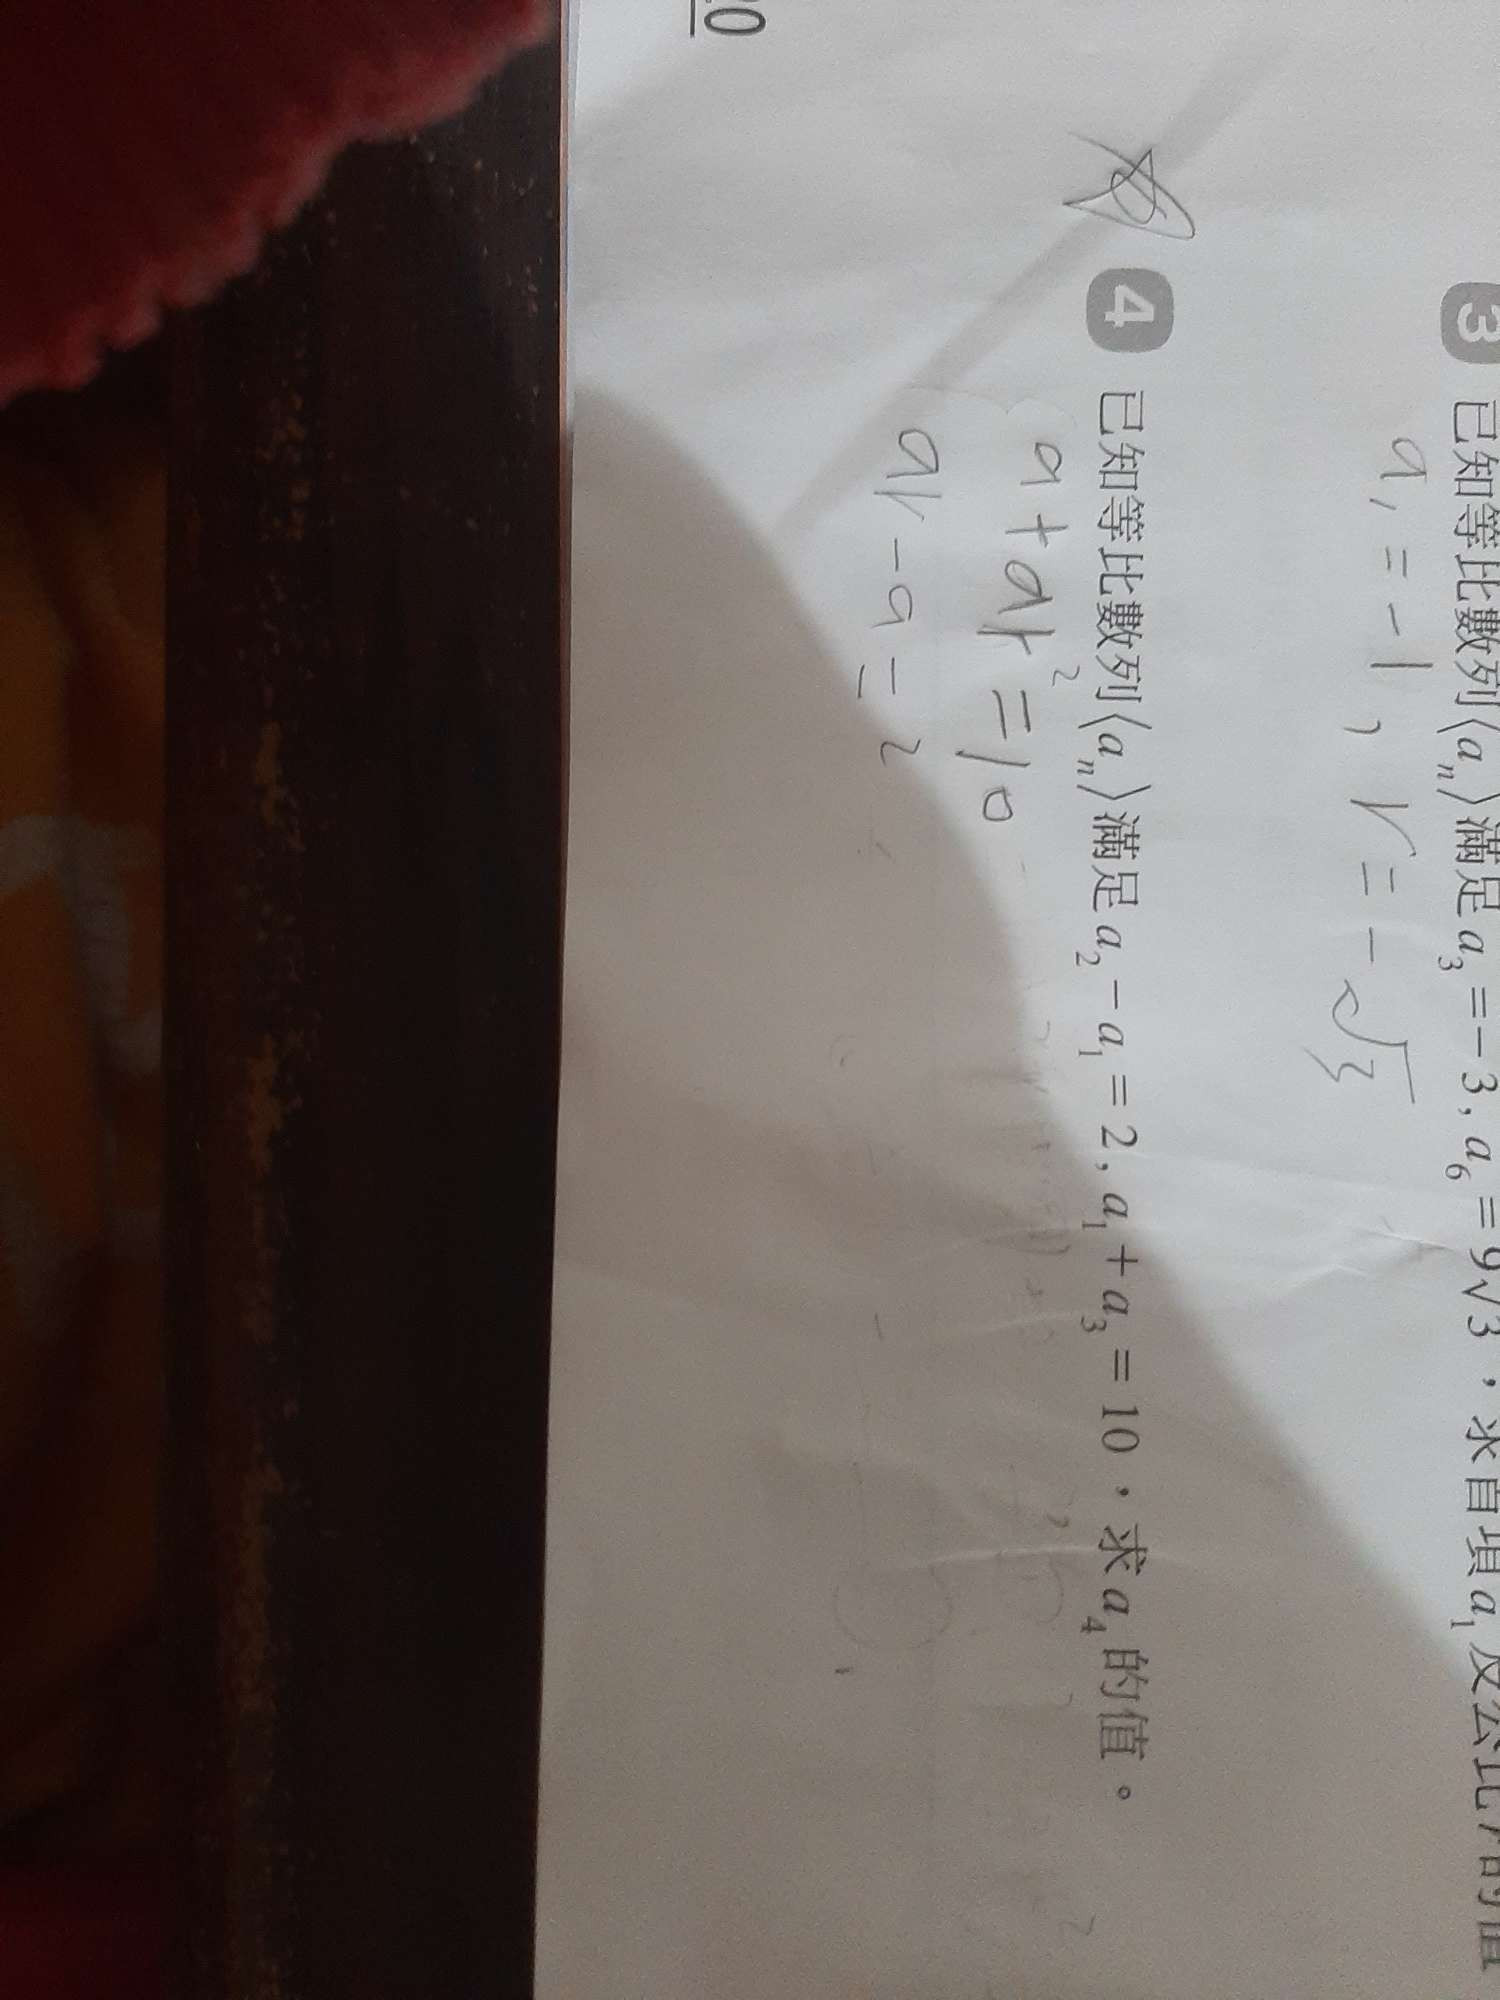 3 已知等比數列⟨aₙ⟩滿足 a₃ = −3, a₆ = 9√3，求首項 a₁ 及公比 r 的值
a₁ = −1, r = −√3
4 已知等比數列⟨aₙ⟩滿足 a₂ − a₁ = 2, a₁ + a₃ = 10，求 a₄ 的值。
a + ar² = 10
ar − a = 2
20